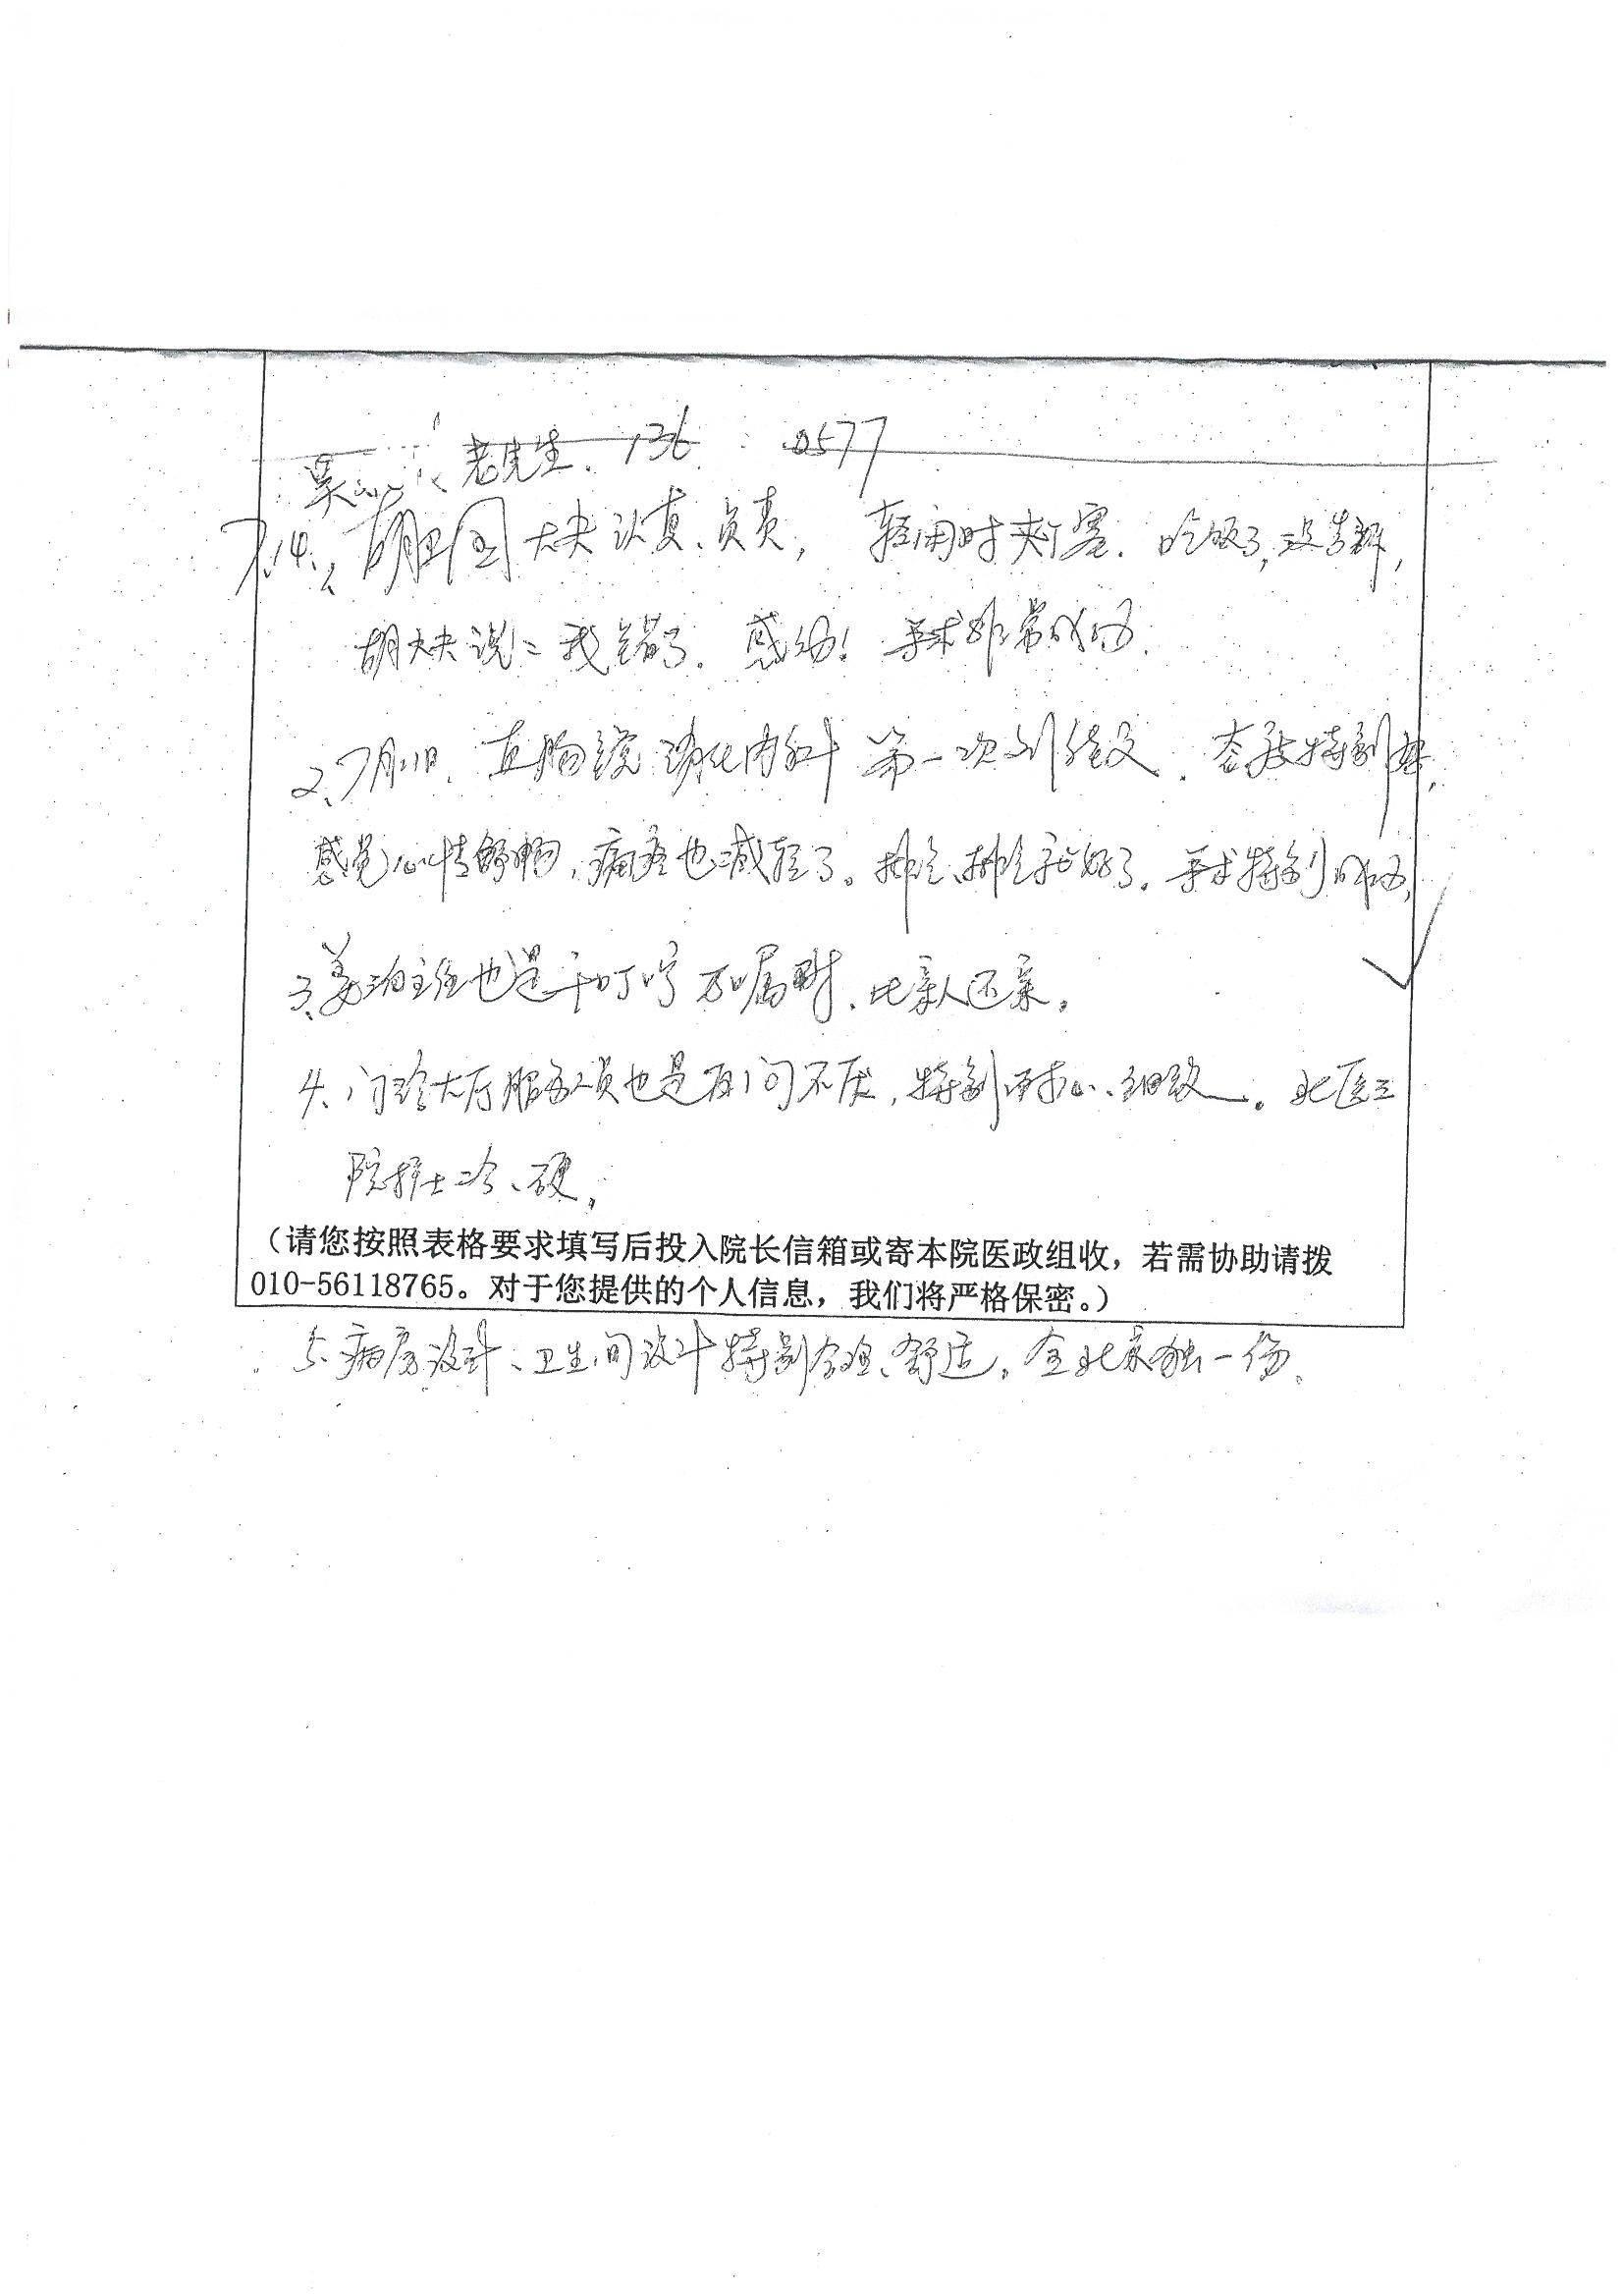 吴 老先生. 136 0577
7.14. 1、胡卫国大夫认真、负责, 轻闹时 . 吃饭了, 没 ,
胡大夫说: 我错了. 感动! 手术非常成功.
2、7月11日. 直肠镜 消化内科 第一次 . 态度特别好,
感觉心情舒畅, 病疼也减轻了。排气、排气就好了. 手术特别成功,
3、姜 主任也是千叮咛万嘱咐、比亲人还亲。
4、门诊大厅服务员也是百问不厌, 特别耐心、细致。北医三
院护士冷、硬。
(请您按照表格要求填写后投入院长信箱或寄本院医政组收，若需协助请拨
010-56118765。对于您提供的个人信息，我们将严格保密。)
5、病房设计、卫生间设计特别合理、舒适, 全北京独一份.